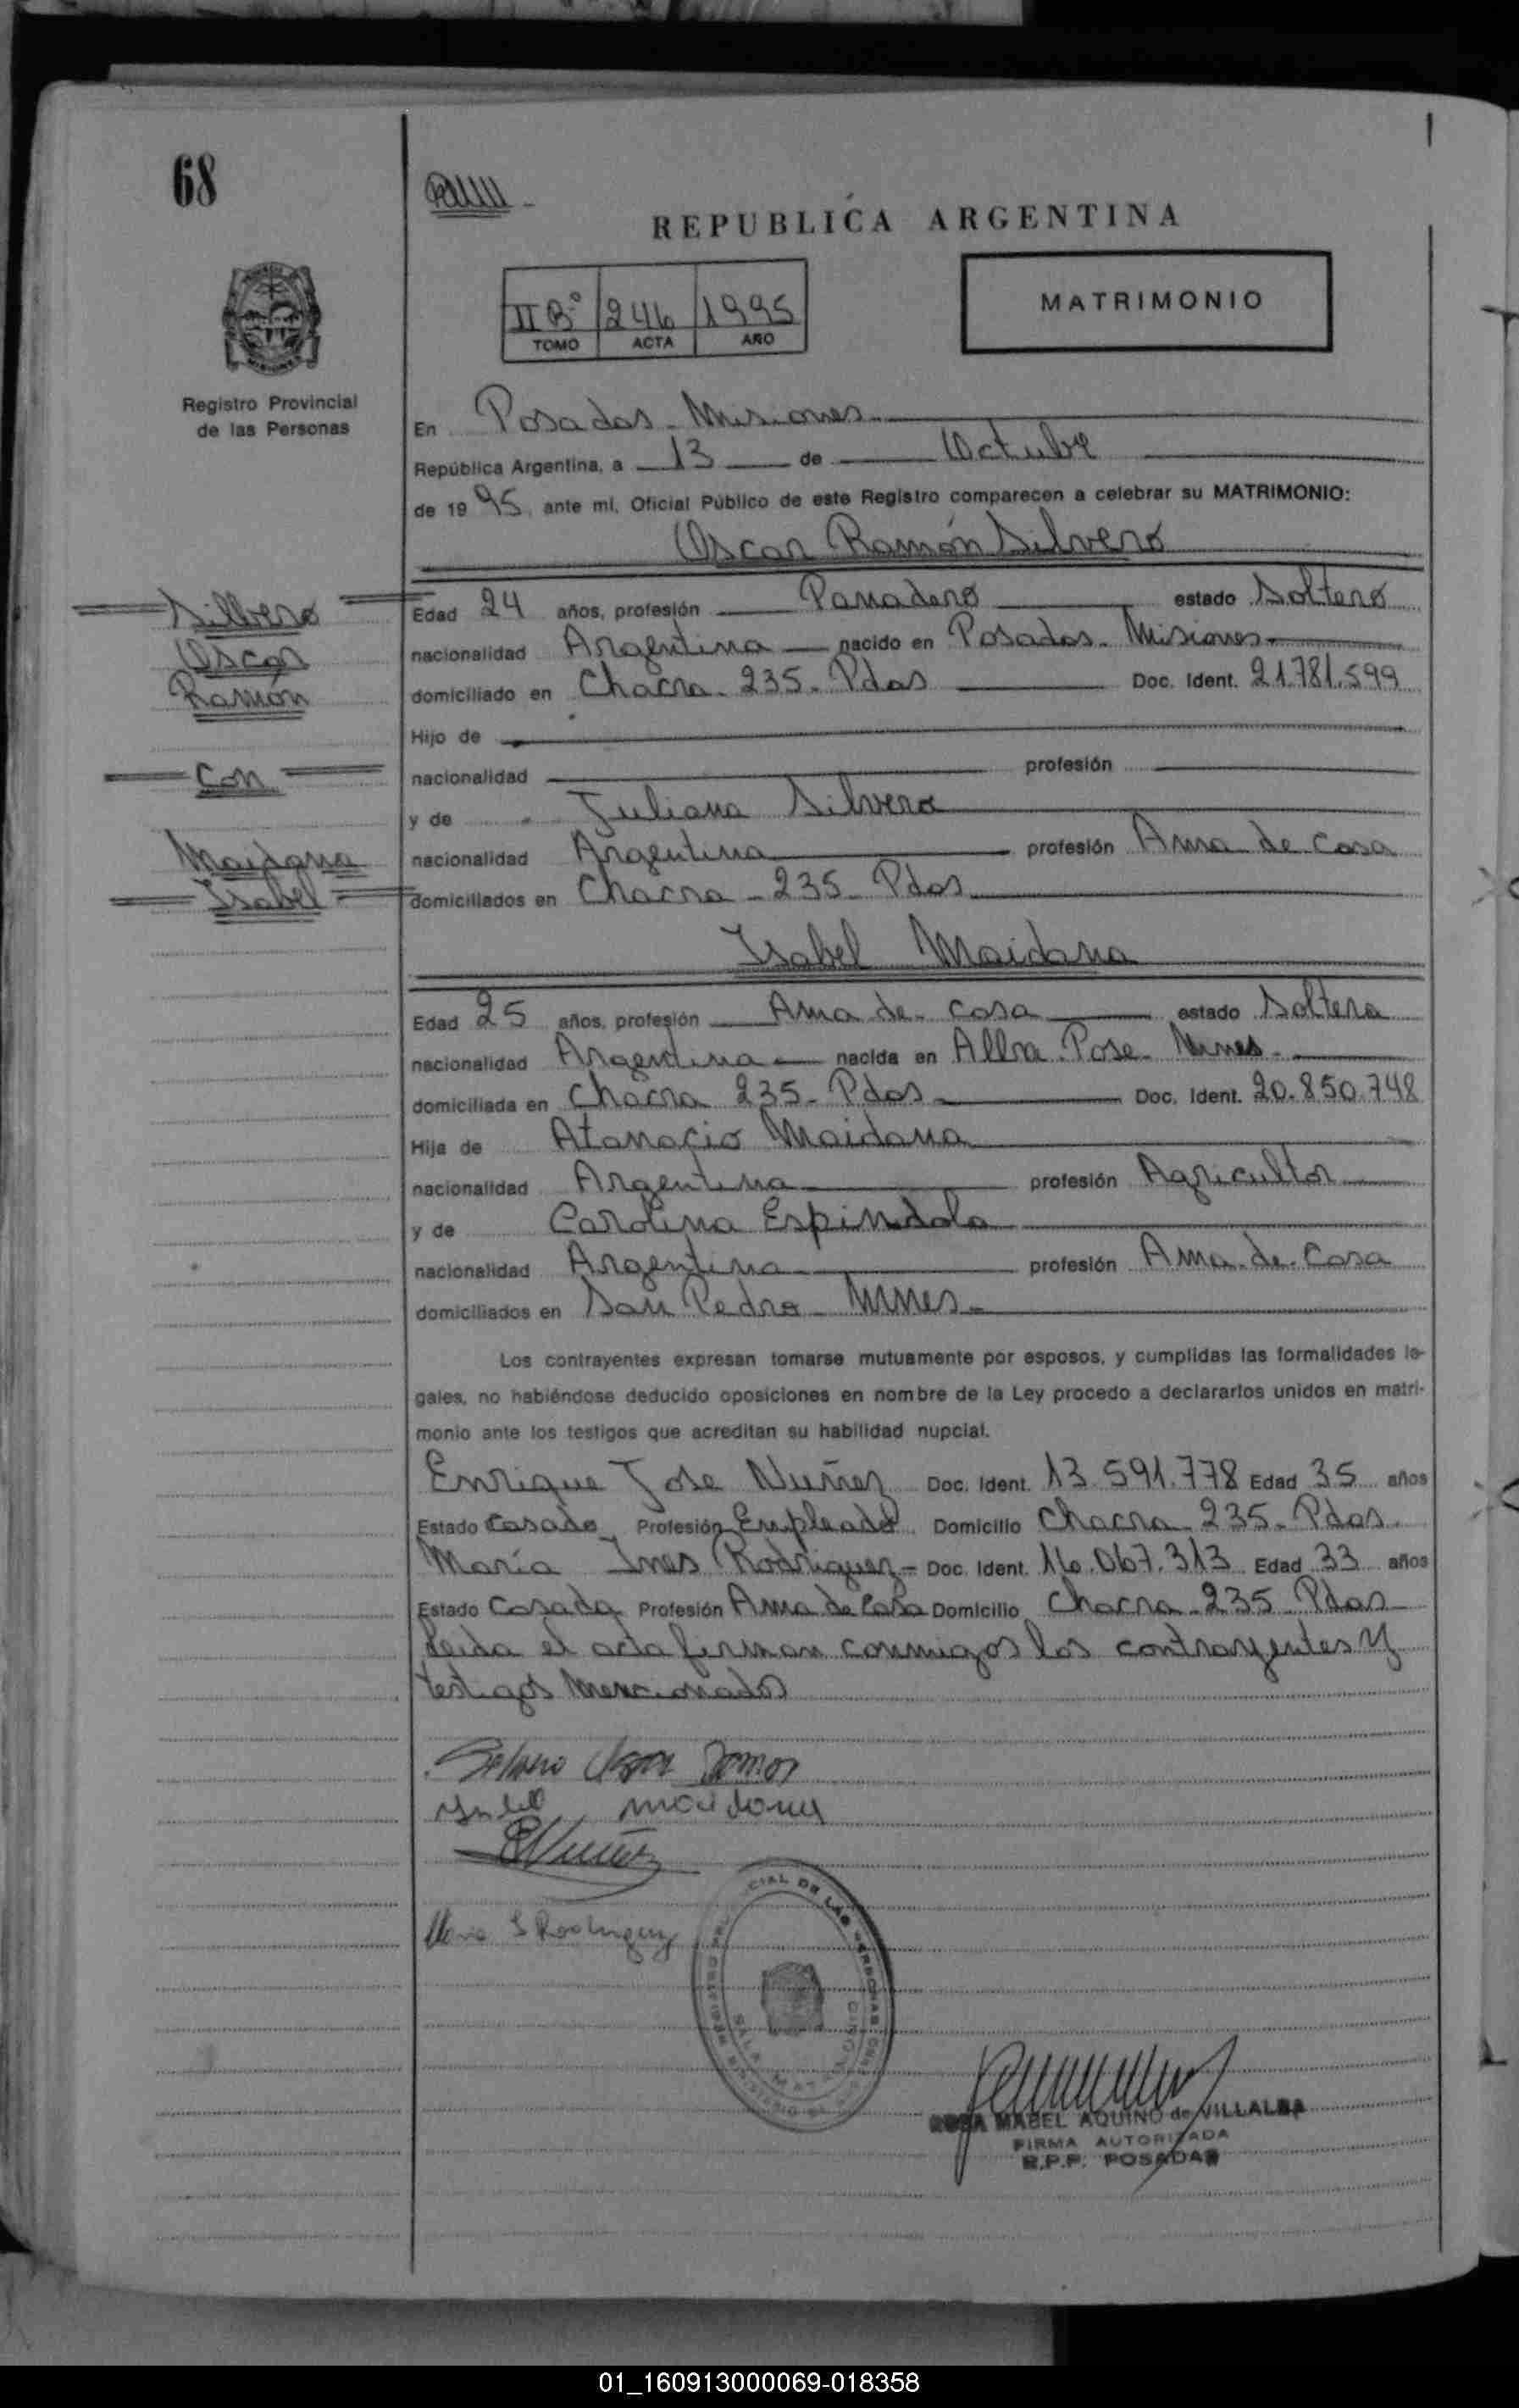 68
REPUBLICA ARGENTINA
IIB° 246 1995
TOMO ACTA AÑO
MATRIMONIO
Registro Provincial
de las Personas
En Posadas - Misiones
República Argentina, a 13 de Octubre
de 1995, ante mi, Oficial Público de este Registro comparecen a celebrar su MATRIMONIO:
Oscar Ramón Silvero
Silvero
Oscar
Ramón
Con
Maidana
Isabel
Edad 24 años, profesión Panadero estado Soltero
nacionalidad Argentina nacido en Posadas - Misiones
domiciliado en Chacra - 235 - Pdas Doc. Ident. 21.781.599
Hijo de
nacionalidad profesión
y de Juliana Silvero
nacionalidad Argentina profesión Ama de Casa
domiciliados en Chacra - 235 - Pdas
Isabel Maidana
Edad 25 años, profesión Ama de Casa estado Soltera
nacionalidad Argentina nacida en Alba Pose - Mnes.
domiciliada en Chacra 235 - Pdas Doc. Ident. 20.850.748
Hija de Atanacio Maidana
nacionalidad Argentina profesión Agricultor
y de Carolina Espindola
nacionalidad Argentina profesión Ama de Casa
domiciliados en San Pedro - Mnes
Los contrayentes expresan tomarse mutuamente por esposos, y cumplidas las formalidades le-
gales, no habiéndose deducido oposiciones en nombre de la Ley procedo a declararlos unidos en matri-
monio ante los testigos que acreditan su habilidad nupcial.
Enrique Jose Nuñez Doc. Ident. 13.591.778 Edad 35 años
Estado Casado Profesión Empleado Domicilio Chacra - 235 - Pdas.
María Ines Rodriguez - Doc. Ident. 16.067.313 Edad 33 años
Estado Casada Profesión Ama de Casa Domicilio Chacra - 235 - Pdas
Leida el acta firman conmigos los contrayentes y
testigos mencionados
Silvero Oscar Ramon
Isabel maidana
E Nuñez
Maria I Rodriguez
ROSA MABEL AQUINO de VILLALBA
FIRMA AUTORIZADA
R.P.P. POSADAS
01_160913000069-018358